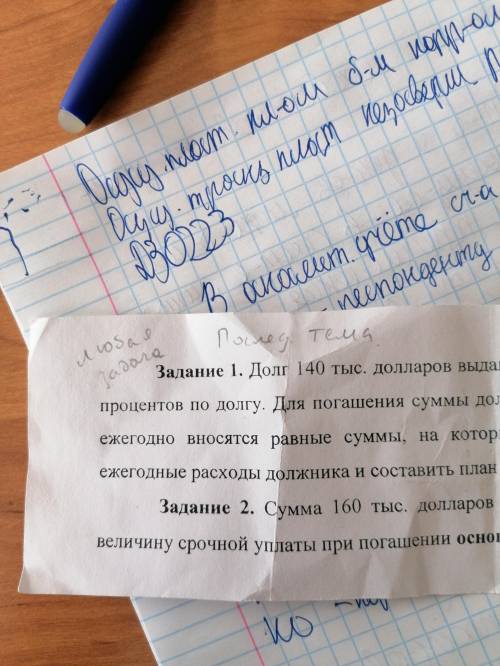 Осущ. плат. пл-ом б-м
Осущ. плат
ДЗО223
В аналит. учёте сч-а
любая задача
Послед. тема.
Задание 1. Долг 140 тыс. долларов выда
процентов по долгу. Для погашения суммы дол
ежегодно вносятся равные суммы, на котор
ежегодные расходы должника и составить план
Задание 2. Сумма 160 тыс. долларов
величину срочной уплаты при погашении основ
КО